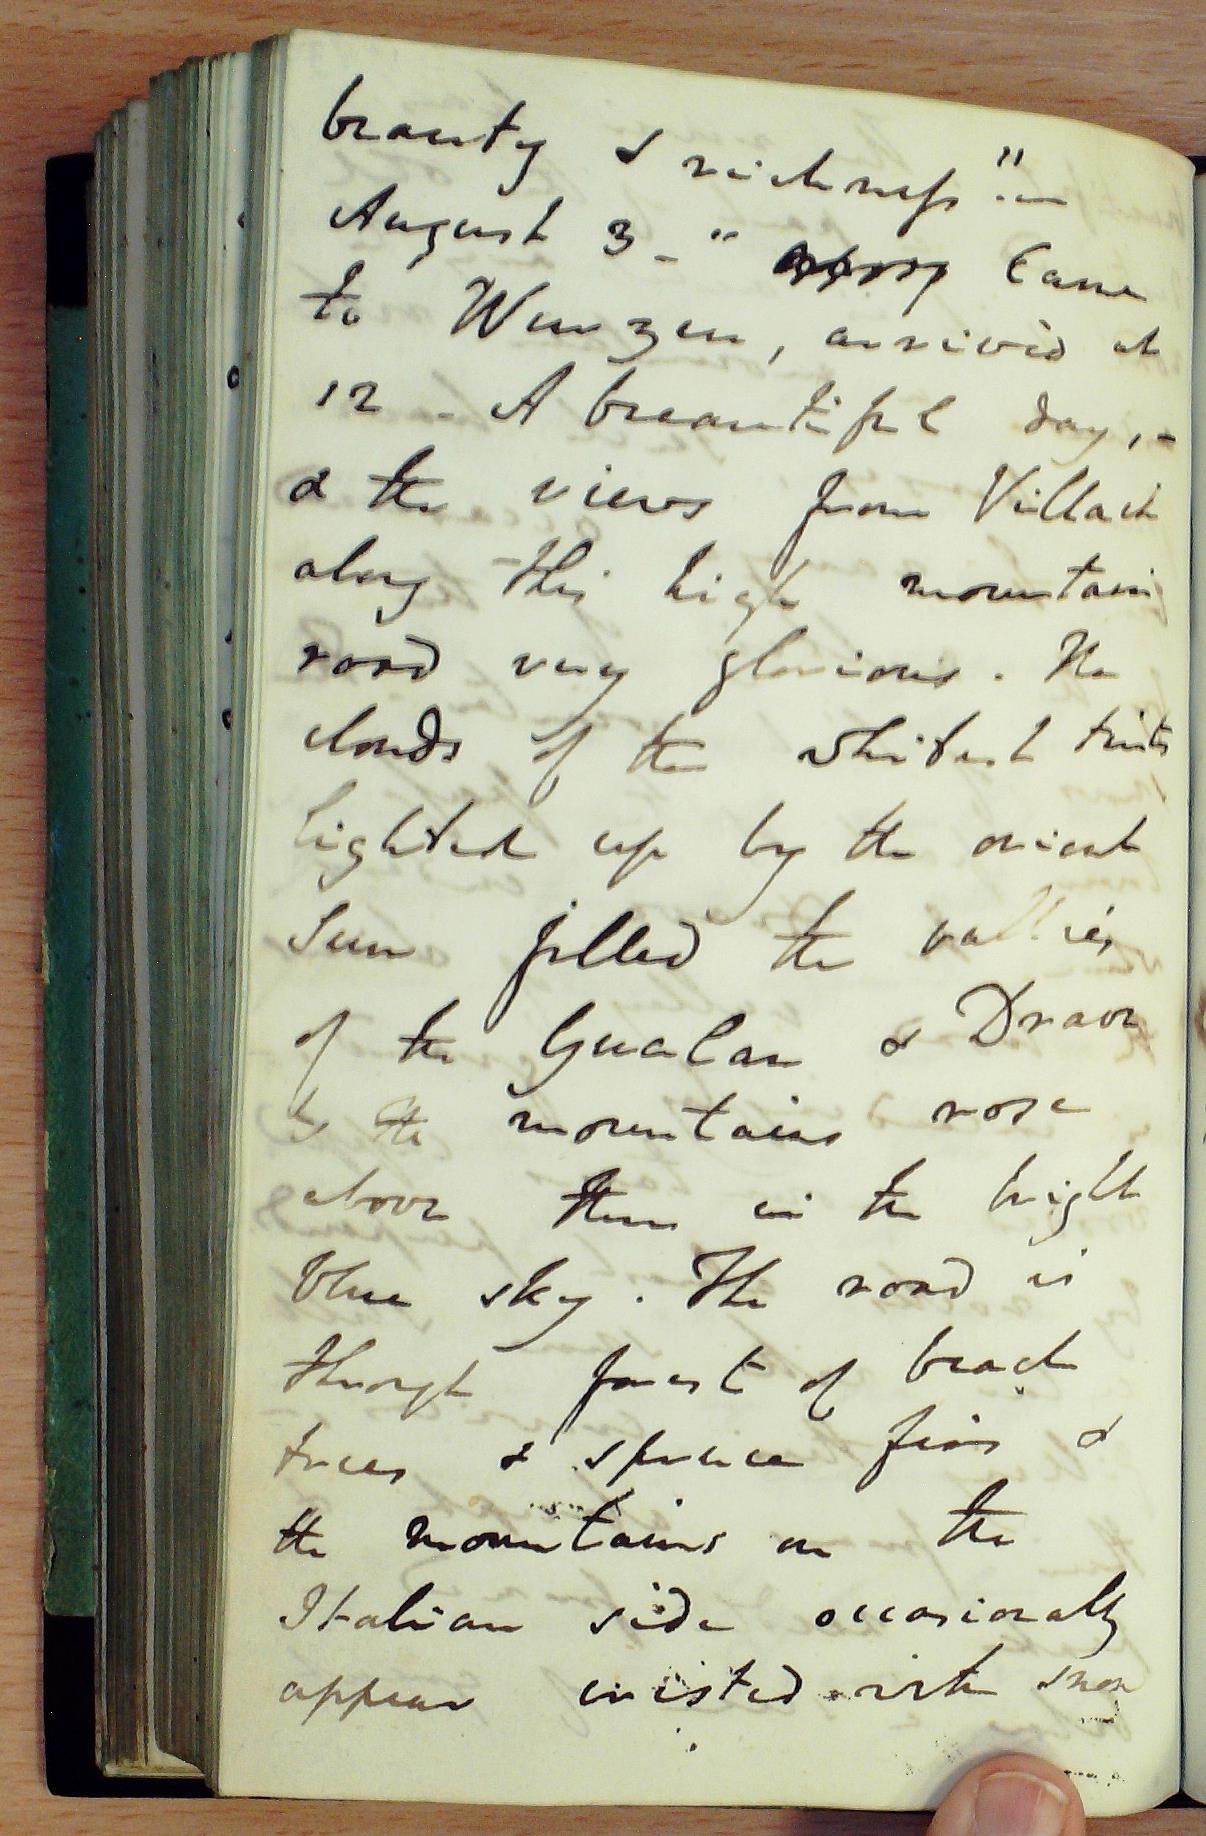 beauty & richness "
August 3 - " Came
to Wurzen, arrived at
12 - A breautiful day, -
& the views from Villach
along this high mountain
road very glorious. The
clouds of the whitest tints
lighted up by the orient
Sun filled the vallies
of the & Drave
the mountains rose
above them in the bright
blue sky. The road is
through forest of beach
trees & spruce firs &
the mountains on the
Italian side occasionally
appear with snow